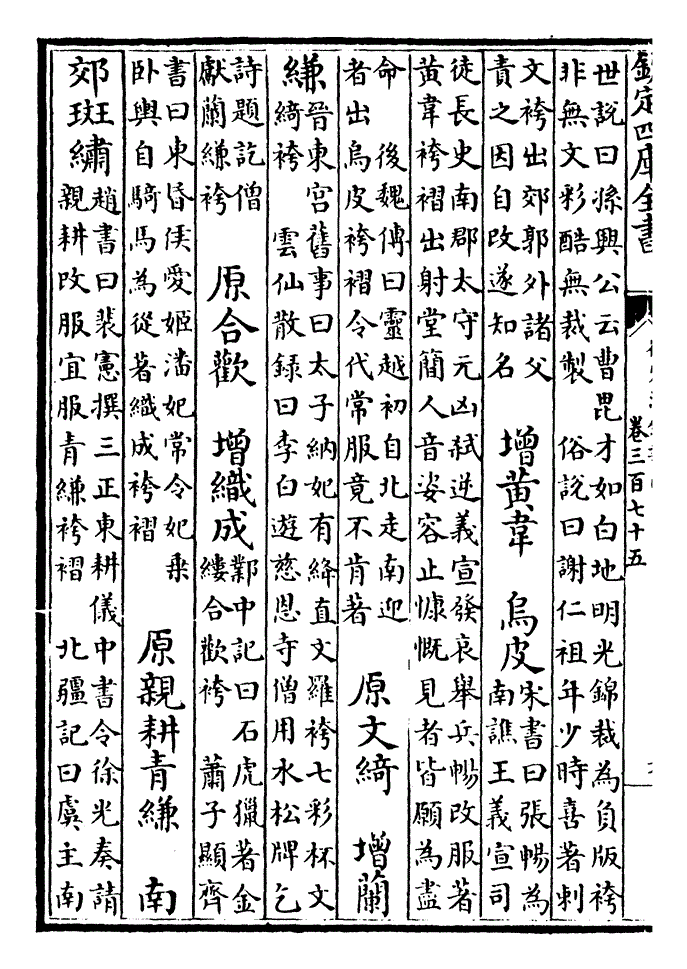 欽定四庫全書
卷三百七十五
世說曰孫興公云曹毘才如白地明光錦裁為負版袴
非無文彩酷無裁製　俗說曰謝仁祖年少時喜著刺
文袴出郊郭外諸父
責之因自改遂知名
增黃韋　烏皮
宋書曰張暢為
南譙王義宣司
徒長史南郡太守元凶弑逆義宣發哀舉兵暢改服著
黃韋袴褶出射堂簡人音姿容止慷慨見者皆願為盡
命　後魏傳曰靈越初自北走南迎
者出烏皮袴褶令代常服竟不肯著
原文綺　增蘭
縑
晉東宮舊事曰太子納妃有絳直文羅袴七彩杯文
綺袴　雲仙散録曰李白遊慈恩寺僧用水松牌乞
詩題訖僧
獻蘭縑袴
原合歡　增織成
鄴中記曰石虎獵著金
縷合歡袴　蕭子顯齊
書曰東昏侯愛姬潘妃常令妃乗
卧輿自騎馬為從著織成袴褶
原親耕青縑　南
郊斑繡
趙書曰裴憲撰三正東耕儀中書令徐光奏請
親耕改服宜服青縑袴褶　北疆記曰虞主南